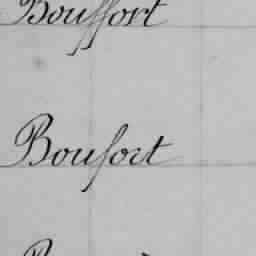 Bouffort
Boufort